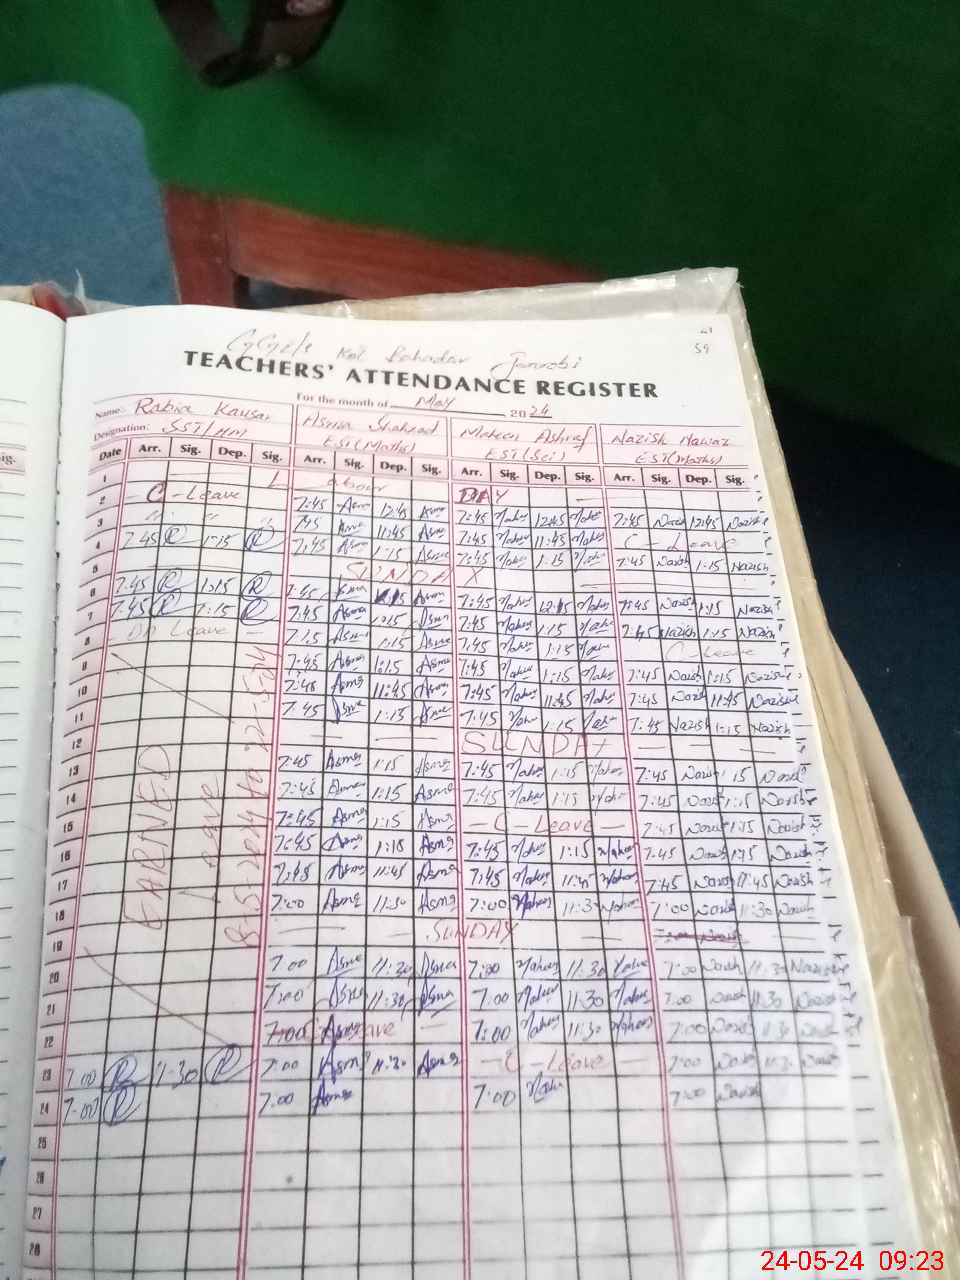 41
59
Kot Bahadar Janobi
TEACHERS' ATTENDANCE REGISTER
For the month of May 2024
Name: Rabia Kausar Asma Shahzad Maheen Ashraf Nazish Nawaz
Designation: SST/HM EST(Maths) EST(Sci) EST(Maths)
Date Arr. Sig. Dep. Sig. Arr. Sig. Dep. Sig. Arr. Sig. Dep. Sig. Arr. Sig. Dep. Sig.
1 Labour DAY
2 C-Leave 7:45 Asma 12:45 Asma 7:45 Mahen 12:45 Mahen 7:45 Nazish 12:45 Nazish
3 " " " 7:45 Asma 11:45 Asma 7:45 Mahen 11:45 Mahen C-Leave
4 7:45 R 1:15 R 7:45 Asma 1:15 Asma 7:45 Mahen 1:15 Mahen 7:45 Nazish 1:15 Nazish
5 SUNDAY
6 7:45 R 1:15 R 7:45 Asma 1:15 Asma 7:45 Mahen 12:15 Mahen 7:45 Nazish 1:15 Nazish
7 7:45 R 1:15 R 7:45 Asma 1:15 Asma 7:45 Mahen 1:15 Mahen 7:45 Nazish 1:15 Nazish
8 On Leave 7:15 Asma 1:15 Asma 7:45 Mahen 1:15 Mahen C-Leave
9 7:45 Asma 1:15 Asma 7:45 Mahen 1:15 Mahen 7:45 Nazish 1:15 Nazish
10 7:48 Asma 11:45 Asma 7:45 Mahen 11:45 Mahen 7:45 Nazish 11:45 Nazish
11 7:45 Asma 1:15 Asma 7:45 Mahen 1:15 Mahen 7:45 Nazish 1:15 Nazish
12 SUNDAY
13 7:45 Asma 1:15 Asma 7:45 Mahen 1:15 Mahen 7:45 Nazish 1:15 Nazish
14 7:45 Asma 1:15 Asma 7:45 Mahen 1:15 Mahen 7:45 Nazish 1:15 Nazish
15 7:45 Asma 1:15 Asma C-Leave 7:45 Nazish 1:15 Nazish
16 7:45 Asma 1:18 Asma 7:45 Mahen 1:15 Mahen 7:45 Nazish 1:15 Nazish
17 7:45 Asma 11:45 Asma 7:45 Mahen 11:45 Mahen 7:45 Nazish 11:45 Nazish
18 7:00 Asma 11:30 Asma 7:00 Mahen 11:30 Mahen 7:00 Nazish 11:30 Nazish
EARNED Leave
19 SUNDAY
20 7:00 Asma 11:30 Asma 7:00 Mahen 11:30 Mahen 7:00 Nazish 11:30 Nazish
21 7:00 Asma 11:30 Asma 7:00 Mahen 11:30 Mahen 7:00 Nazish 11:30 Nazish
22 C-Leave 7:00 Mahen 11:30 Mahen 7:00 Nazish 11:30 Nazish
23 7:00 R 11:30 R 7:00 Asma 11:30 Asma C-Leave 7:00 Nazish 11:30 Nazish
24 7:00 R 7:00 Asma 7:00 Mahen 7:00 Nazish
25
26
27
28
Sig.
24-05-24 09:23